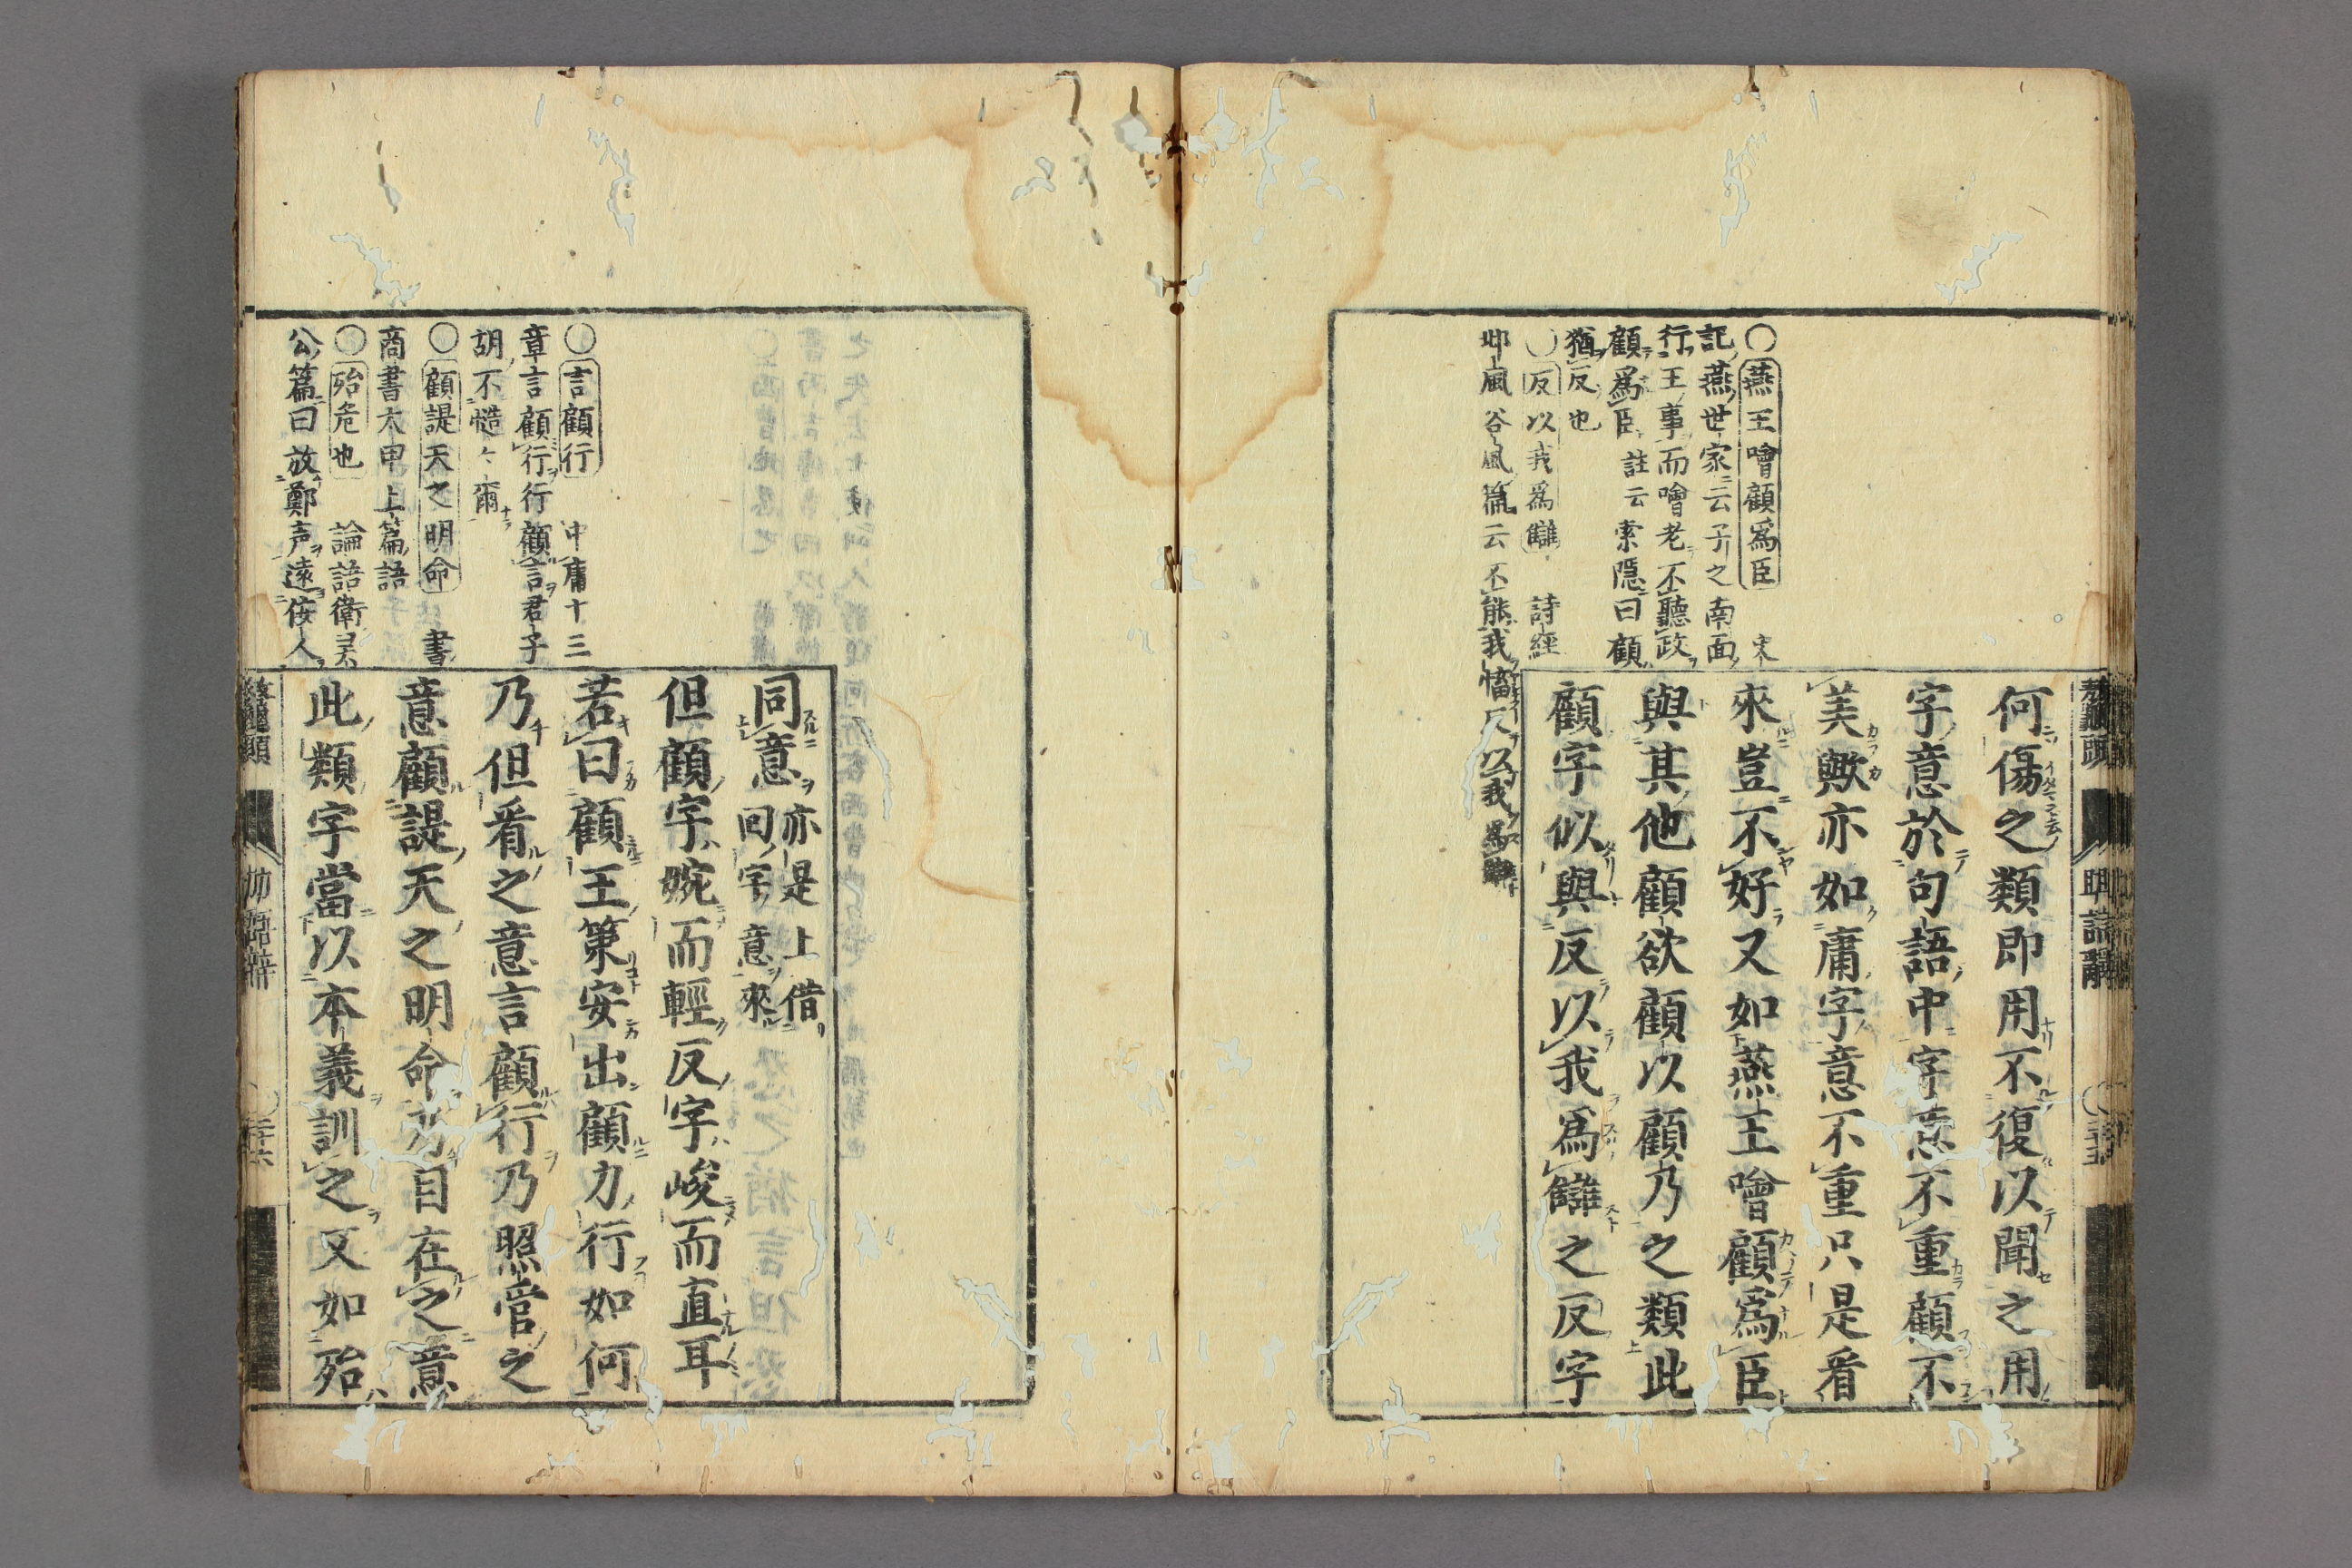 ○燕王噲顧爲臣 史
記燕世家云子之南面
行王事而噲老不聽政
顧爲臣註云索隠曰顧
猶反也
○反以我爲讎 詩經
邶風谷風篇云不能我慉反以我爲讎
何傷之類即用不復以聞之用
字意於句語中字意不重顧不
美歟亦如庸字意不重只是看
來豈不好又如燕王噲顧爲臣
與其他顧欲顧以顧乃之類此
顧字似與反以我爲讎之反字
○言顧行 中庸十三
章言顧行行顧言君子
胡不慥々爾
○顧諟天之明命 書
商書太甲上篇語
○殆危也 論語衛灵
公篇曰放鄭声遠佞人
同意亦是上借
回字意來
但顧字婉而輕反字峻而直耳
若曰顧王策安出顧力行如何
乃但看之意言顧行乃照管之
意顧諟天之明命乃目在之意
此類字當以本義訓之又如殆